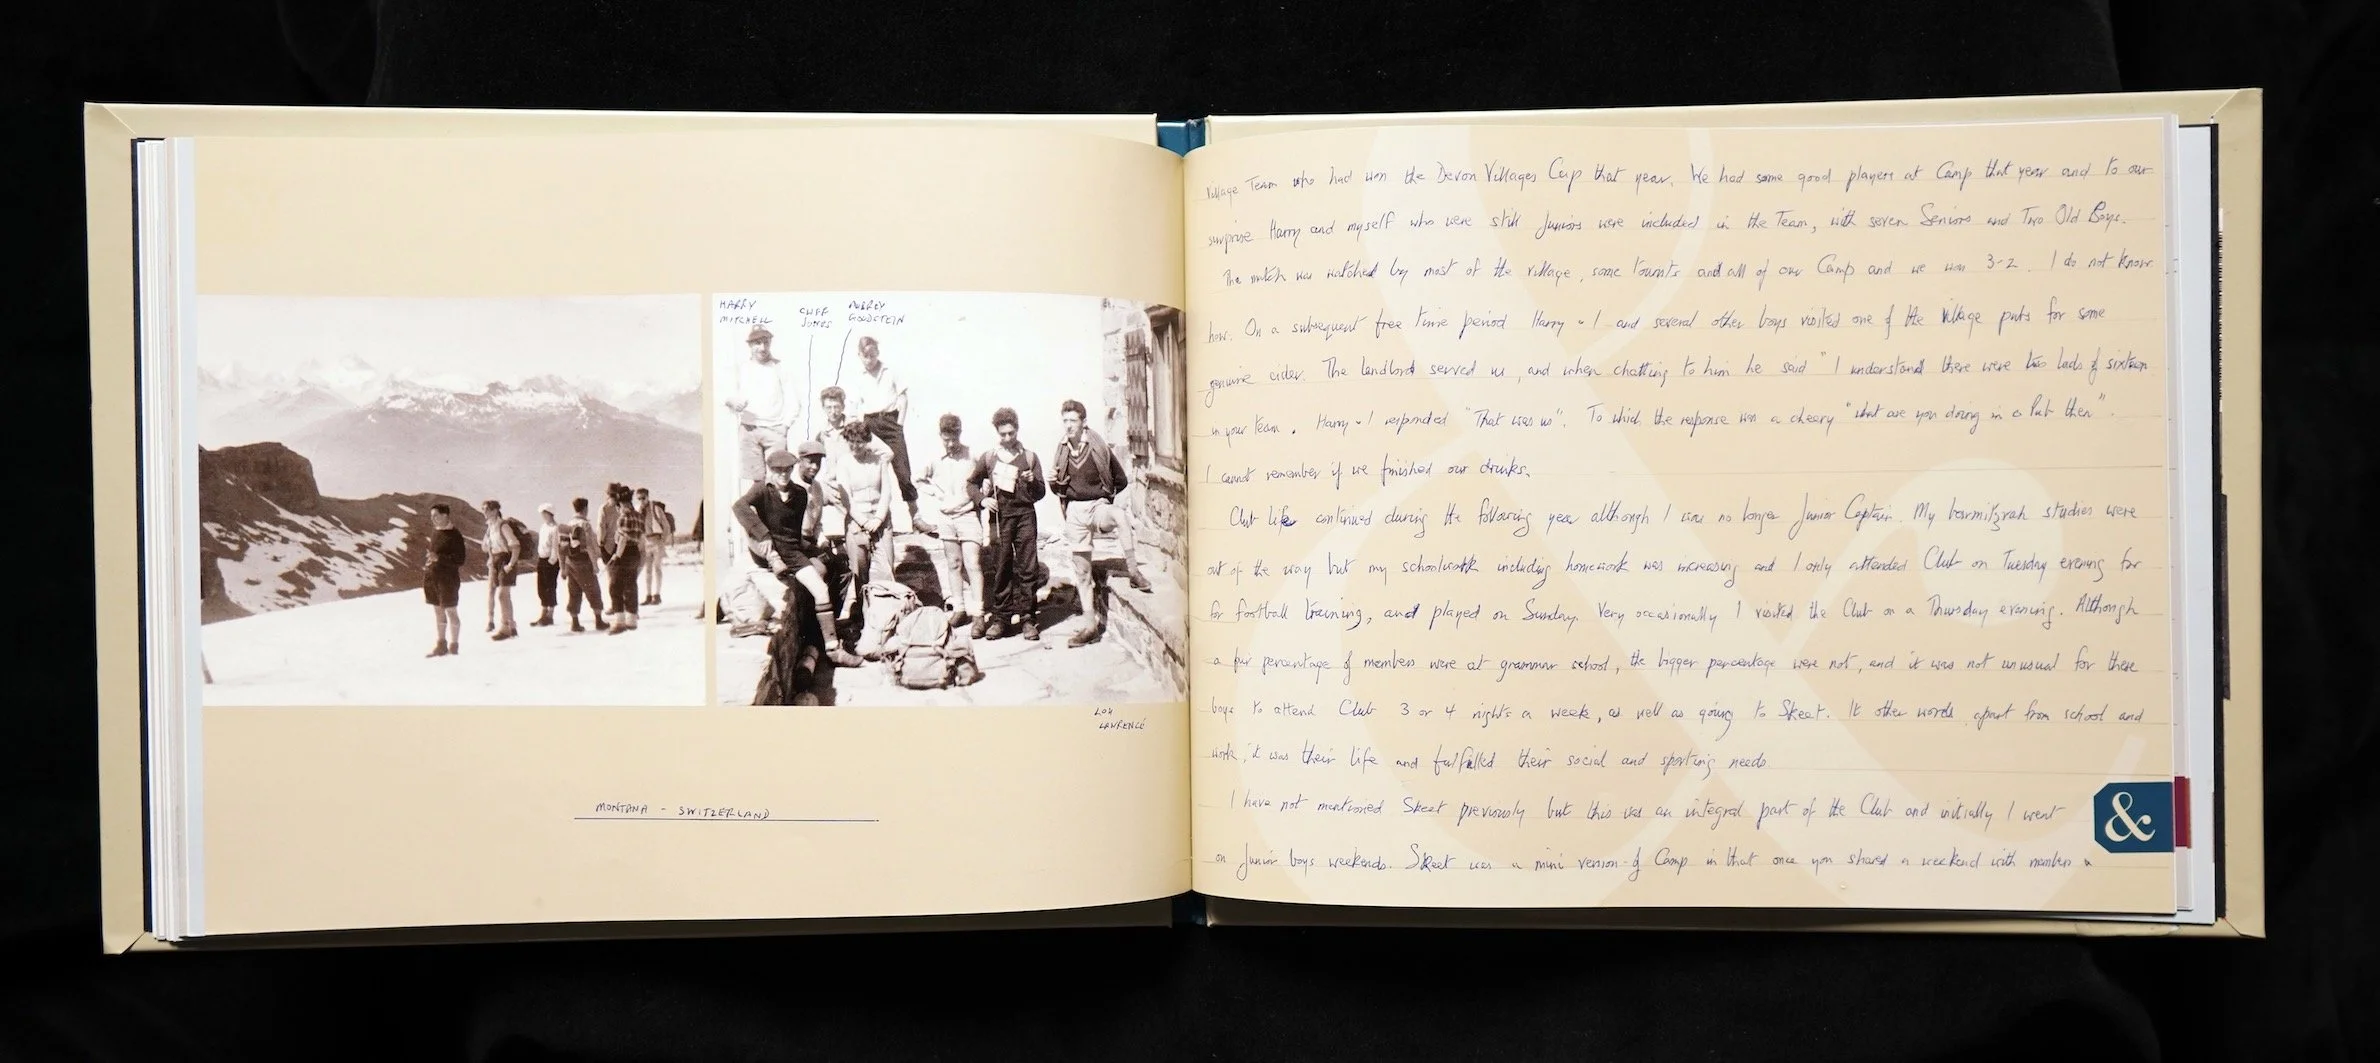 HARRY
MITCHELL
CLIFF
JONES
AUBREY
GOLDSTEIN
LOU
LAWRENCE
MONTANA - SWITZERLAND
Village Team who had won the Devon Villages Cup that year. We had some good players at Camp that year and to our
surprise Harry and myself who were still Juniors were included in the Team, with seven Seniors and Two Old Boys.
The match was watched by most of the village, some tourists and all of our Camp and we won 3-2. I do not know
how. On a subsequent free time period Harry + I and several other boys visited one of the village pubs for some
genuine cider. The landlord served us, and when chatting to him he said "I understand there were two lads of sixteen
in your team. Harry + I responded "That was us". To which the response was a cheery "what are you doing in a Pub then".
I cannot remember if we finished our drinks.
Club life continued during the following year although I was no longer Junior Captain. My barmitzvah studies were
out of the way but my schoolwork including homework was increasing and I only attended Club on Tuesday evening for
for football training, and played on Sunday. Very occasionally I visited the Club on a Thursday evening. Although
a fair percentage of members were at grammar school, the bigger percentage were not, and it was not unusual for these
boys to attend Club 3 or 4 nights a week, as well as going to Skeet. It other words, apart from school and
work, it was their life and fulfilled their social and sporting needs.
I have not mentioned Skeet previously but this was an integral part of the Club and initially I went
on Junior boys weekends. Skeet was a mini version of Camp in that once you shared a weekend with members
&